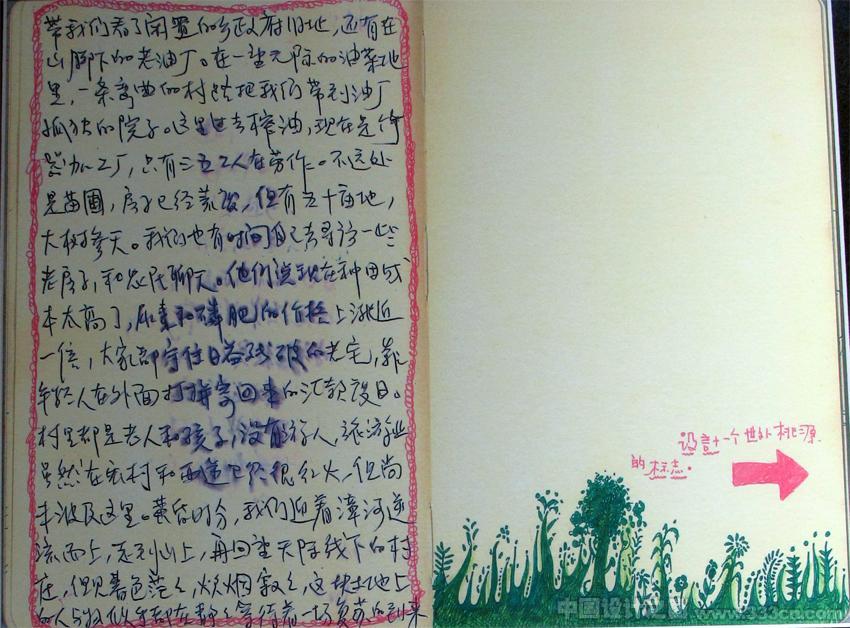 带我们看了闲置的乡政府旧址，还有在
山脚下的老油厂。在一望无际的油菜地
里，一条弯曲的村路把我们带到油厂
孤独的院子。这里过去榨油，现在是
加工厂，只有三五工人在劳作。不远处
是苗圃，房子已经荒废，但有五十亩地，
大树参天。我们也有时间自己去寻访一些
老房子，和农民聊天。他们说现在种田成
本太高了，尿素和磷肥的价格上涨近
一倍，大家都守住日益残破的老宅，靠
年轻人在外面打拼寄回来的汇款度日。
村里都是老人和孩子，没有行人，旅游业
虽然在宏村和西递已经很红火，但尚
未波及这里。黄昏时分，我们迎着漳河逆
流而上，走到山上，再回望天际线下的村
庄，但见暮色茫茫，炊烟袅袅，这块土地上
的人与物似乎都在静静等待着一场复苏的到来
设计一个世外桃源
的标志。
中国设计之窗 www.333cn.com